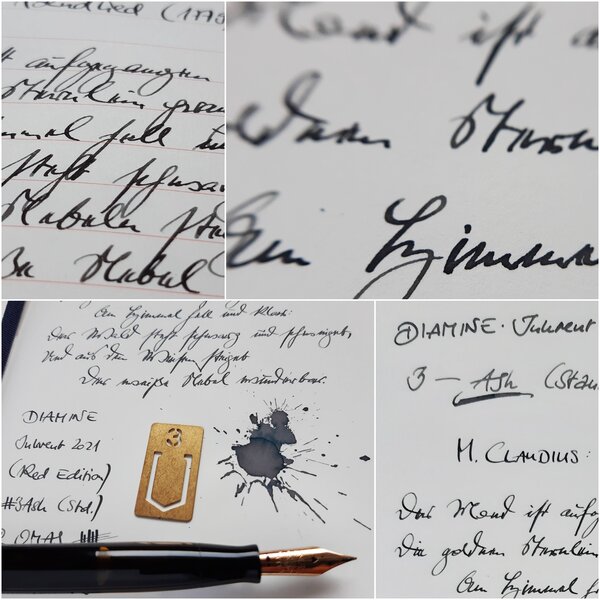 endlied (1779
t aufgegangen
Sternlein pran
immel hell un
steht schwar
ße Nebel
Mond ist a
oldnen Stern
Am Himme
Am Himmel hell und klar:
Der Wald steht schwarz und schweiget,
Und aus den Wiesen steiget
Der weiße Nebel wunderbar.
DIAMINE
Inkvent 2021
(Red Edition)
#3 Ash (Std.)
OMAS
3
DIAMINE · Inkvent
3 — Ash (Stan
M. CLAUDIUS:
Der Mond ist aufg
Die goldnen Sternlein
Am Himmel h